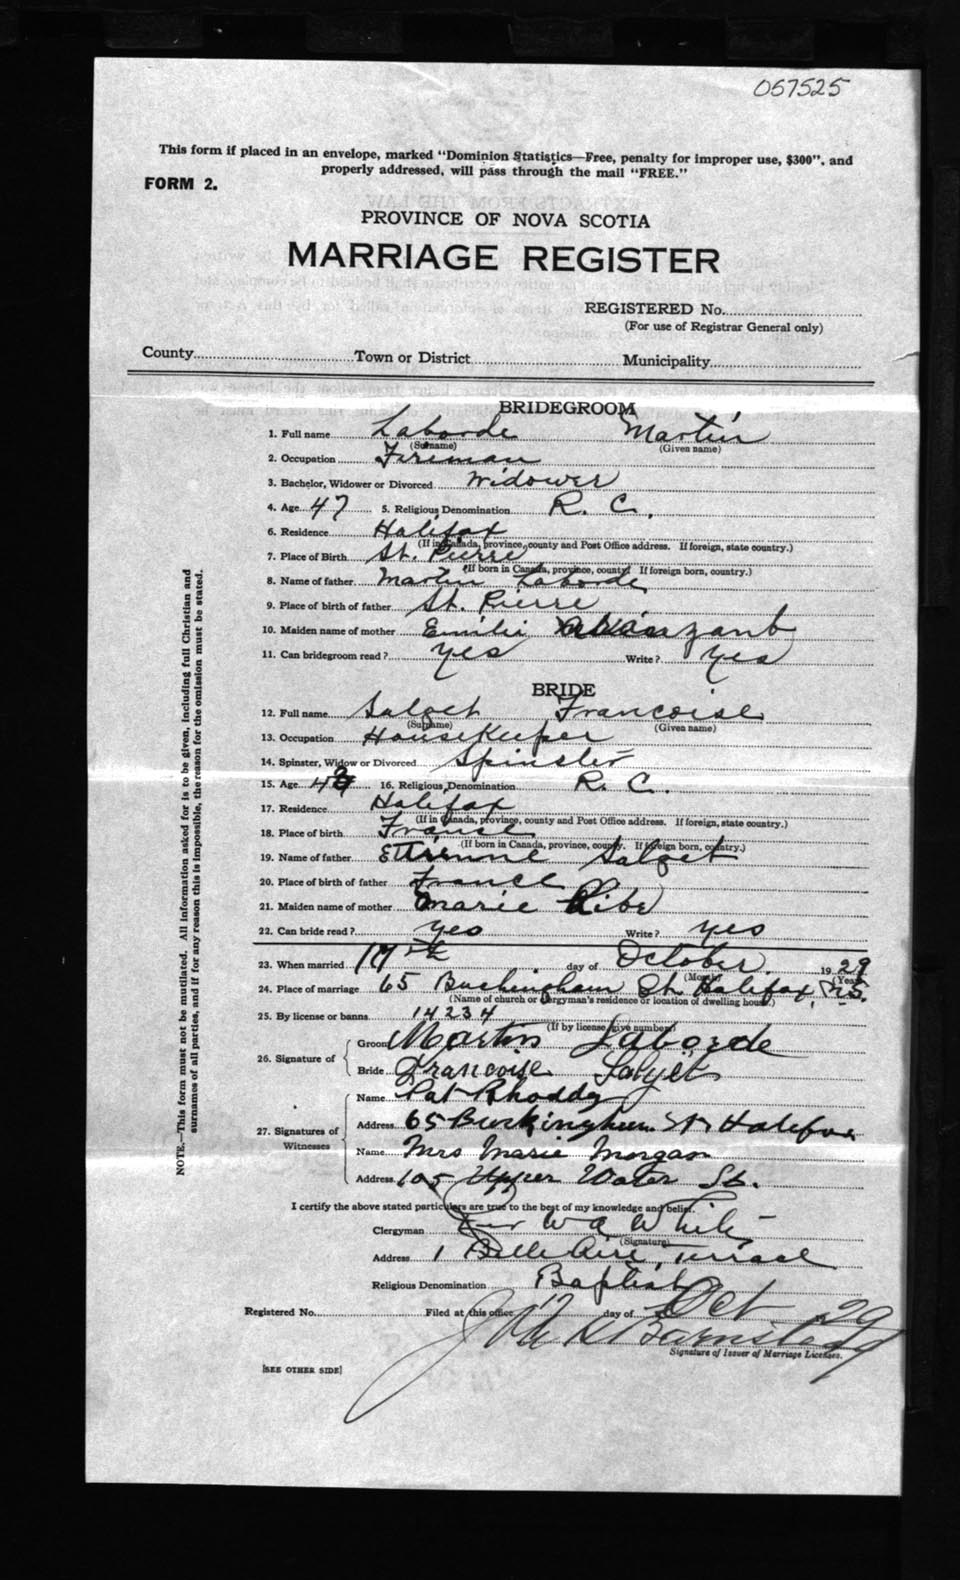 057525
This form if placed in an envelope, marked "Dominion Statistics—Free, penalty for improper use, $300", and
properly addressed, will pass through the mail "FREE."
FORM 2.
PROVINCE OF NOVA SCOTIA
MARRIAGE REGISTER
REGISTERED No.
(For use of Registrar General only)
County Town or District Municipality
BRIDEGROOM
1. Full name Laborde Martin
(Surname) (Given name)
2. Occupation Fireman
3. Bachelor, Widower or Divorced Widower
4. Age 47 5. Religious Denomination R. C.
6. Residence Halifax
(If in Canada, province, county and Post Office address. If foreign, state country.)
7. Place of Birth St. Pierre
(If born in Canada, province, county. If foreign born, country.)
8. Name of father Martin Laborde
9. Place of birth of father St. Pierre
10. Maiden name of mother Emilie
11. Can bridegroom read? yes Write? yes
BRIDE
12. Full name Salget Francoise
(Surname) (Given name)
13. Occupation Housekeeper
14. Spinster, Widow or Divorced Spinster
15. Age 16. Religious Denomination R. C.
17. Residence Halifax
(If in Canada, province, county and Post Office address. If foreign, state country.)
18. Place of birth France
(If born in Canada, province, county. If foreign born, country.)
19. Name of father Etienne Salget
20. Place of birth of father France
21. Maiden name of mother Marie
22. Can bride read? yes Write? yes
23. When married 17th day of October 1929
(Month) (Year)
24. Place of marriage 65 Buckingham St. Halifax, N.S.
(Name of church or clergyman's residence or location of dwelling house)
25. By license or banns 14234
(If by license, give number)
26. Signature of
Groom Martin Laborde
Bride Francoise Salget
27. Signatures of Witnesses
Name Pat Rhoddy
Address 65 Buckingham St Halifax
Name Mrs Marie Morgan
Address 105 Upper Water St.
I certify the above stated particulars are true to the best of my knowledge and belief.
Clergyman Rev W A White
(Signature)
Address 1 Belle Aire Terrace
Religious Denomination Baptist
Registered No. Filed at this office 17 day of Oct 29
Barnstead
Signature of Issuer of Marriage Licenses.
[SEE OTHER SIDE]
NOTE.—This form must not be mutilated. All information asked for is to be given, including full Christian and
surnames of all parties, and if for any reason this is impossible, the reason for the omission must be stated.